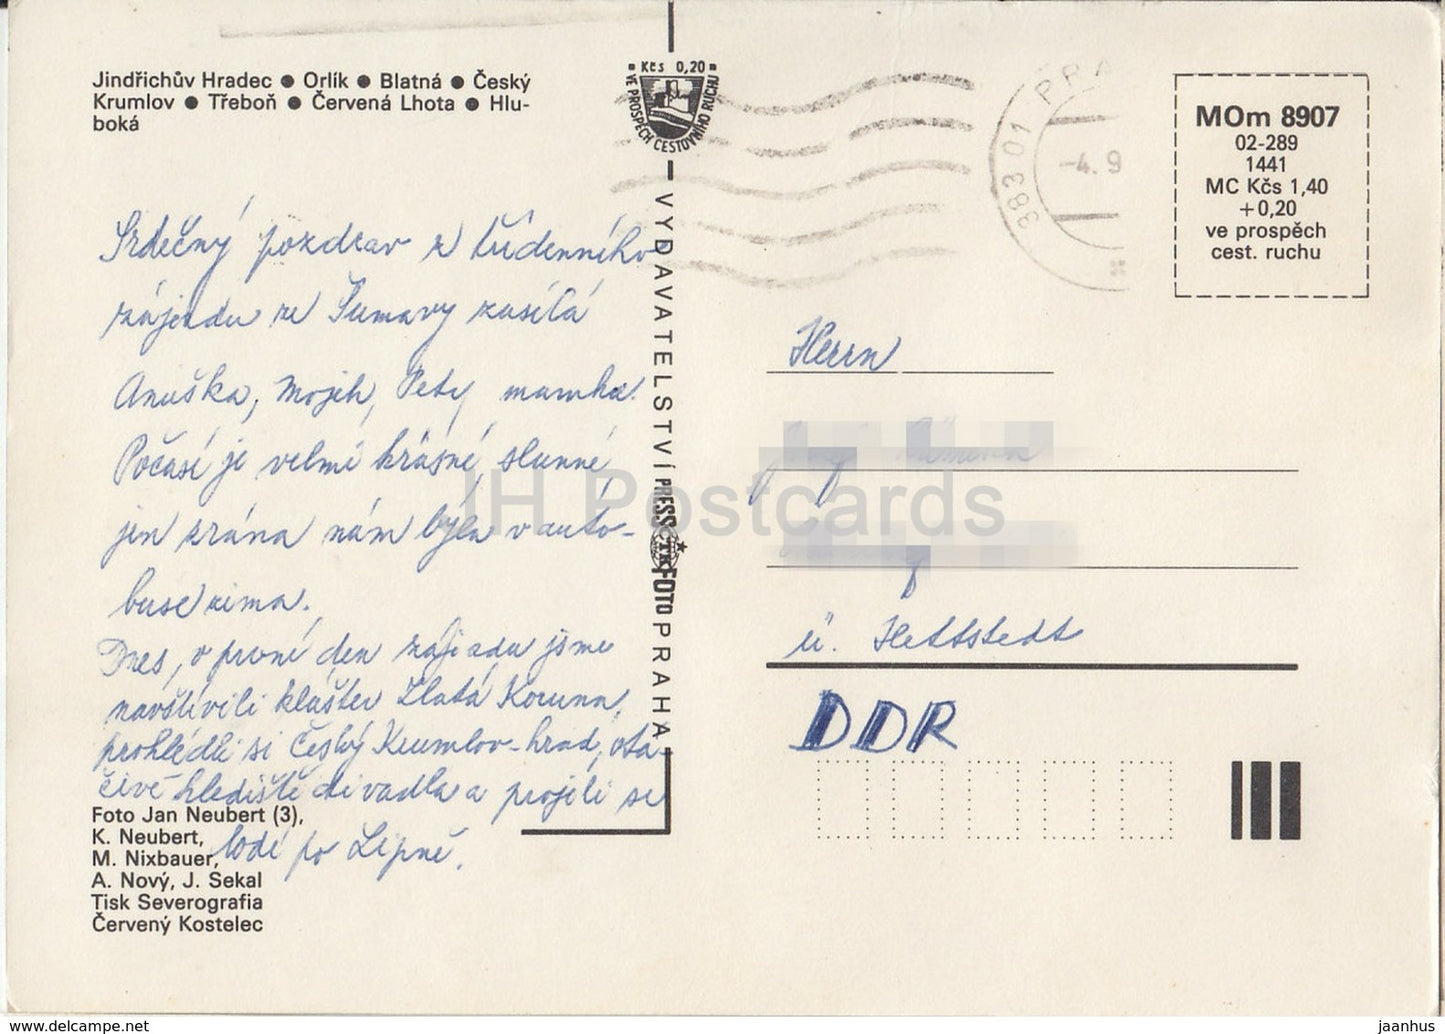 Jindřichův Hradec ● Orlík ● Blatná ● Český
Krumlov ● Třeboň ● Červená Lhota ● Hlu-
boká
Kčs 0,20
VE PROSPĚCH CESTOVNÍHO RUCHU
383 01 PRA
-4. 9
MOm 8907
02-289
1441
MC Kčs 1,40
+0,20
ve prospěch
cest. ruchu
Srdečný pozdrav z týdenního
zájezdu ze Šumavy zasílá
Anuška, Mojih, Pety mamka.
Počasí je velmi krásné, slunné
jen zrána nám byla v auto-
buse zima.
Dnes, v první den zájezdu jsme
navštívili klášter Zlatá Koruna,
prohlédli si Český Krumlov-hrad, otá-
čivé hlediště divadla a projeli se
lodí po Lipně.
VYDAVATELSTVÍ PRESSFOTO PRAHA
ČTK
Herrn
ü. Hettstedt
DDR
Foto Jan Neubert (3),
K. Neubert,
M. Nixbauer,
A. Nový, J. Sekal
Tisk Severografia
Červený Kostelec
IH Postcards
www.delcampe.net
jaanhus